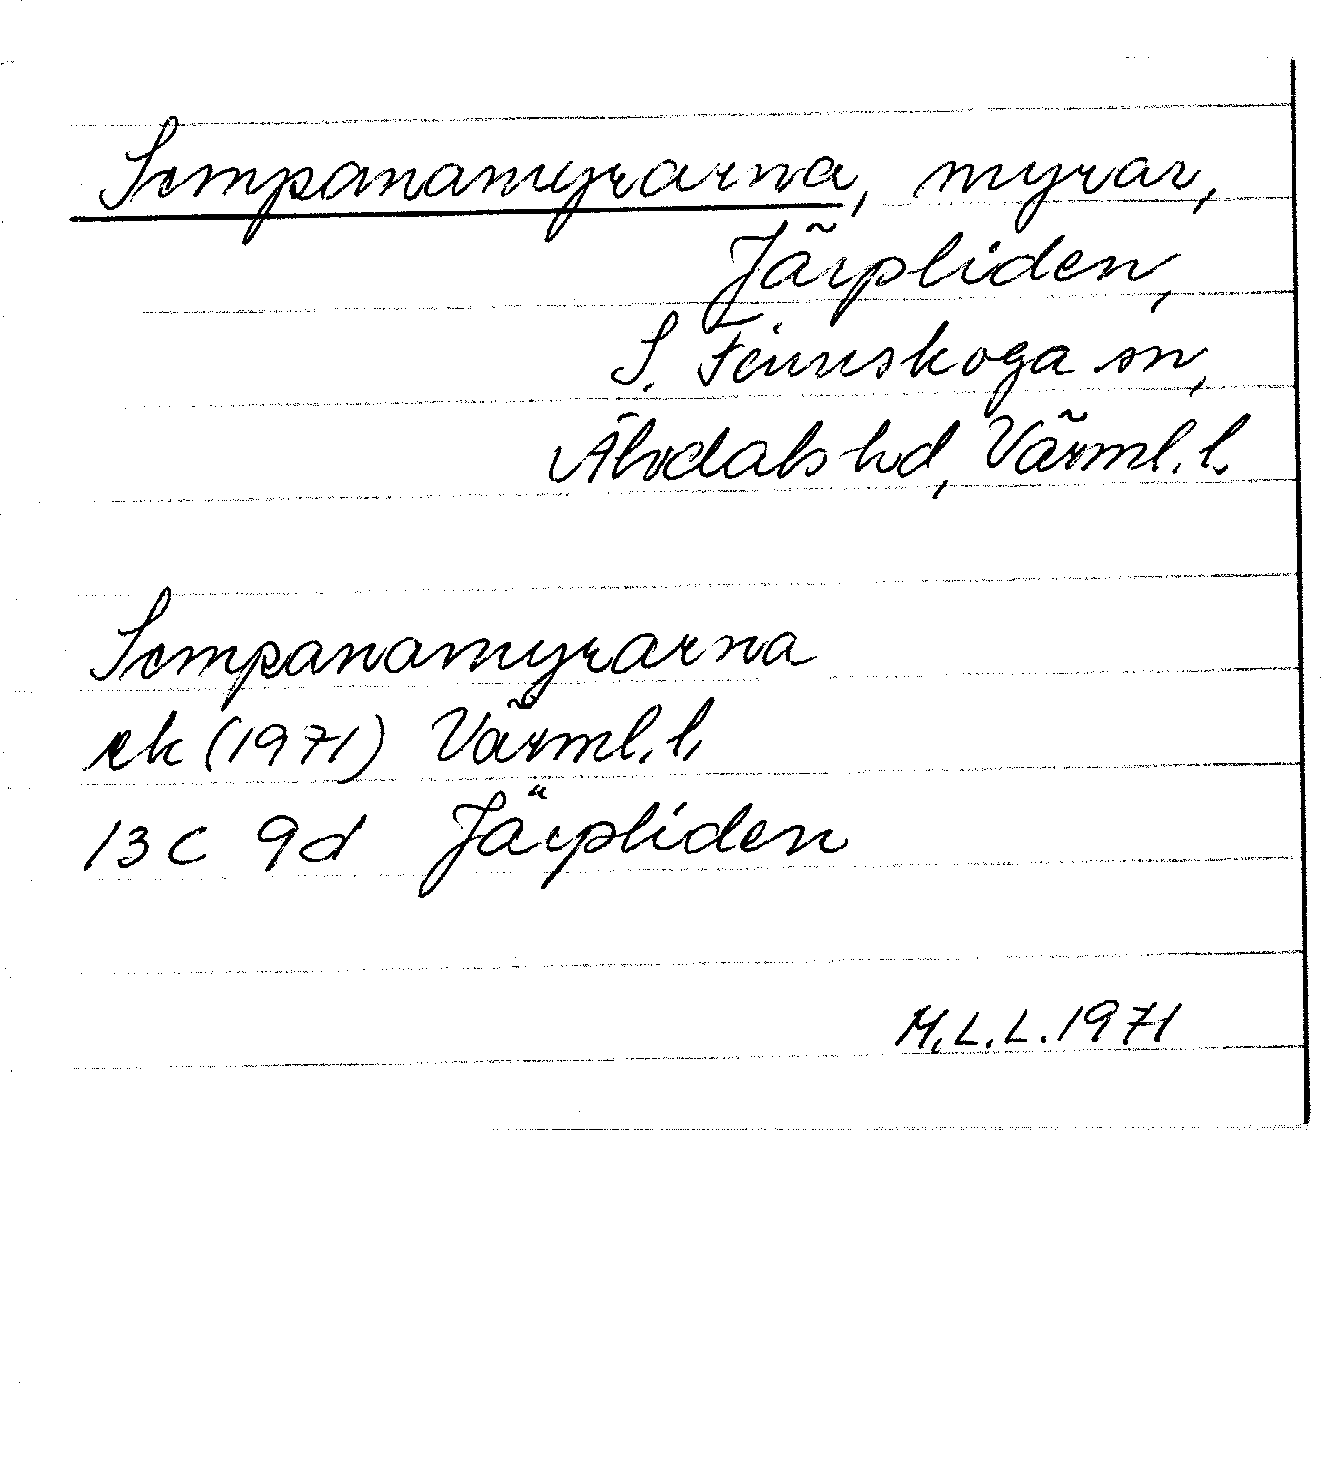 Sompanamyrarna, myrar,
Järpliden,
S. Finnskoga sn,
Älvdals hd, Värml. l.
Sompanamyrarna
ek (1971) Värml. l.
13 C 9d Järpliden
M.L.L. 1971